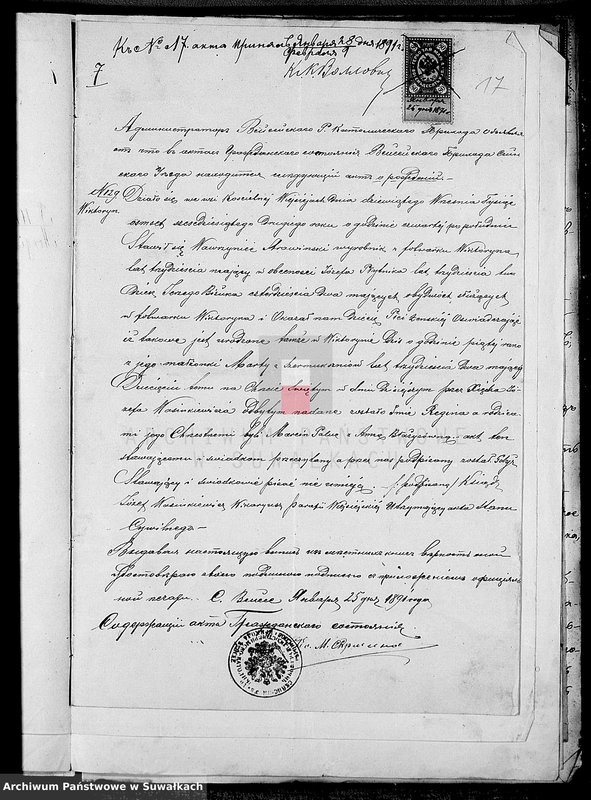 Къ № 17. акта принята Января 28 дня 1891 г.
Февраля 9
7
17
Администраторъ Вейсейскаго Р. Католическаго Прихода
что въ актахъ Гражданскаго состоянія Вейсейскаго Прихода Сейн
скаго Уѣзда находится слѣдующій актъ о рожденіи. —
№ 129
Wiktoryn
Działo się we wsi Kościelnej Wejsejach Dnia dziewiątego Września Tysiąc
ośmset sześćdziesiątego Drugiego roku o godzinie czwartej po południu
Stawił się Wawrzyniec wyrobnik z folwarku Wiktoryna
lat trzydzieści mający w obecności Józefa lat trzydzieści
czterdzieści dwa mających obydwóch służących
w folwarku Wiktoryna i Okazał nam Dziecię Płci Żeńskiej Oświadczając
iż takowe jest urodzone tamże w Wiktorynie Dziś o godzinie piątej rano
z jego małżonki Marty z lat trzydzieści Dwa mającej
Dziecięciu temu na Chrzcie Świętym w dniu Dzisiejszym przez Księdza Jó
zefa Wasinkiewicza odbytym nadane zostało Imie Regina a rodzica
mi jego Chrzestnemi byli Marcin Palac i Anna akt ten
stawającemu i świadkom przeczytany a przez nas podpisany został Gdyż
Stawający i świadkowie pisać nie umieją. /podpisano/ Ksiądz
Józef Wasinkiewicz Wikaryusz Parafii Wejsejskiej Utrzymujący akta Stanu
Cywilnego —
Выдавая настоящую выпись изъ метрическихъ книгъ вѣрность оной
удостовѣряю своего подписью съ приложеніемъ официаль
ной печати. С. Вейсее Января 25 дня 1891 года
Содержащій акта Гражданскаго состоянія
Кс. М.
ARCHIWUM PAŃSTWOWE
W SUWAŁKACH
Archiwum Państwowe w Suwałkach